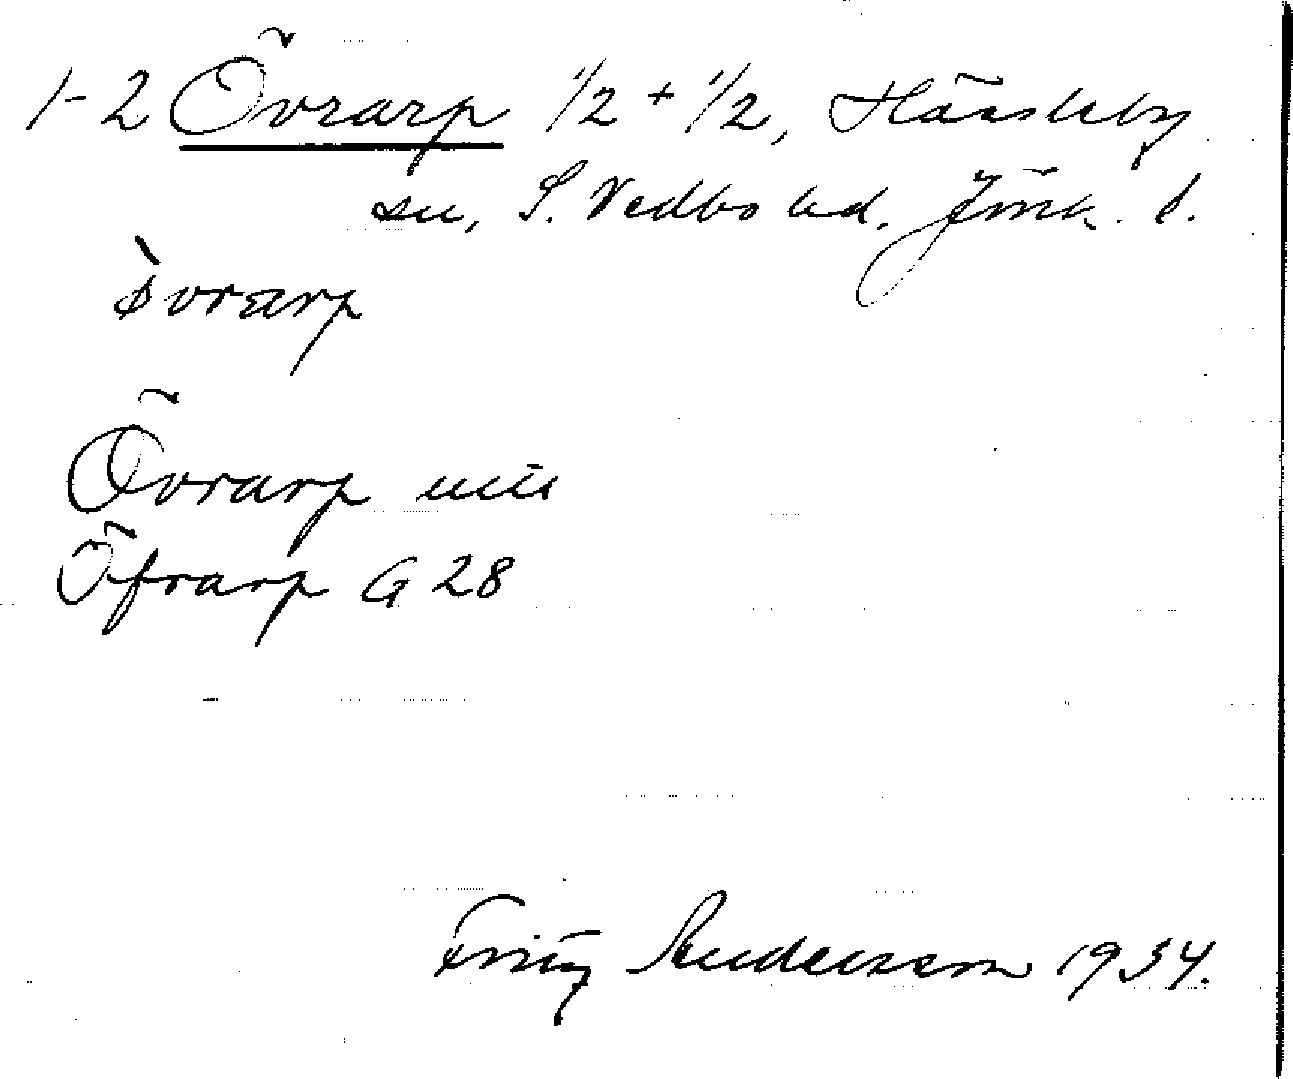 1-2 Övrarp 1/2 + 1/2, Hässleby
sn, S. Vedbo hd. Jönk. l.
ø̀vrarp
Övrarp
Öfrarp G 28
Fritz Anderson 1934.